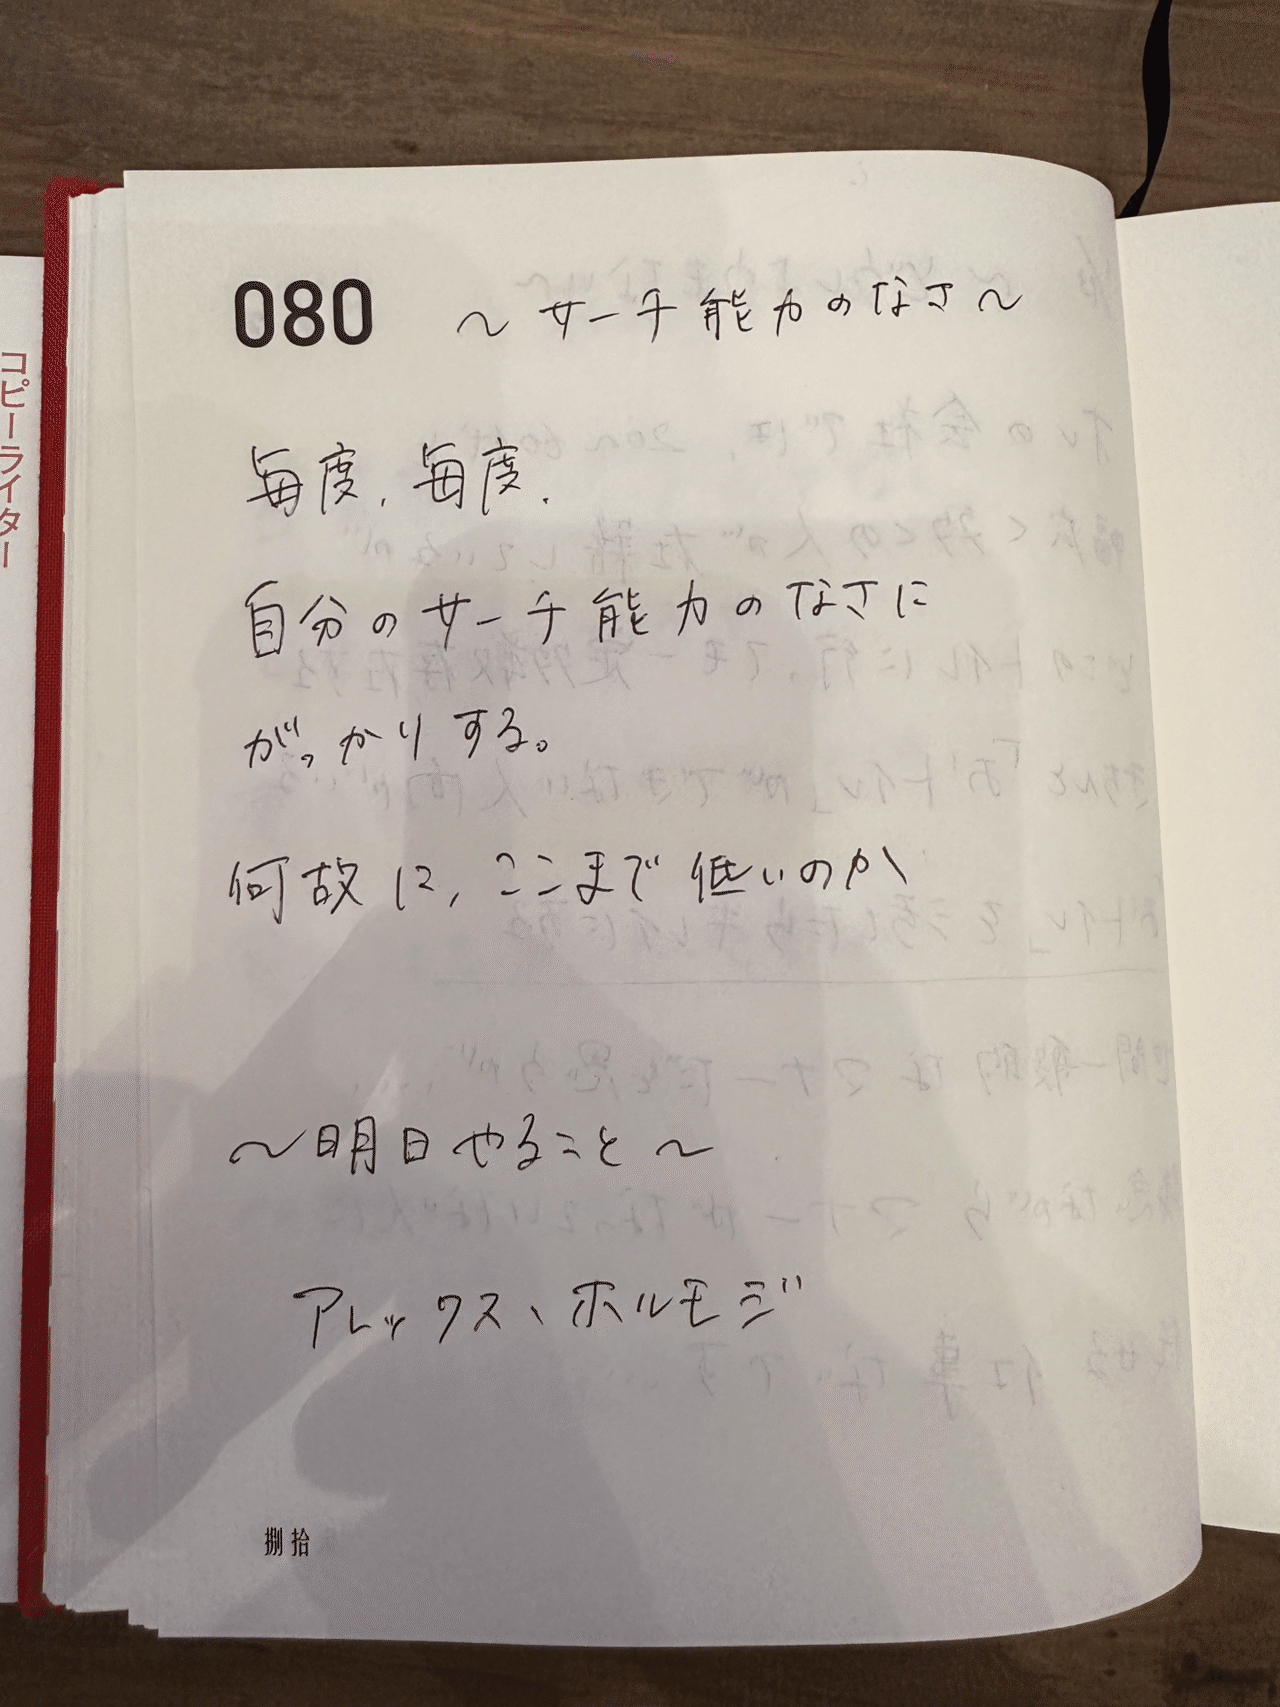 コピーライター
080 〜サーチ能力のなさ〜
毎度、毎度、
自分のサーチ能力のなさに
がっかりする。
何故に、ここまで低いのか
〜明日やること〜
アレックス、ホルモジ
捌拾